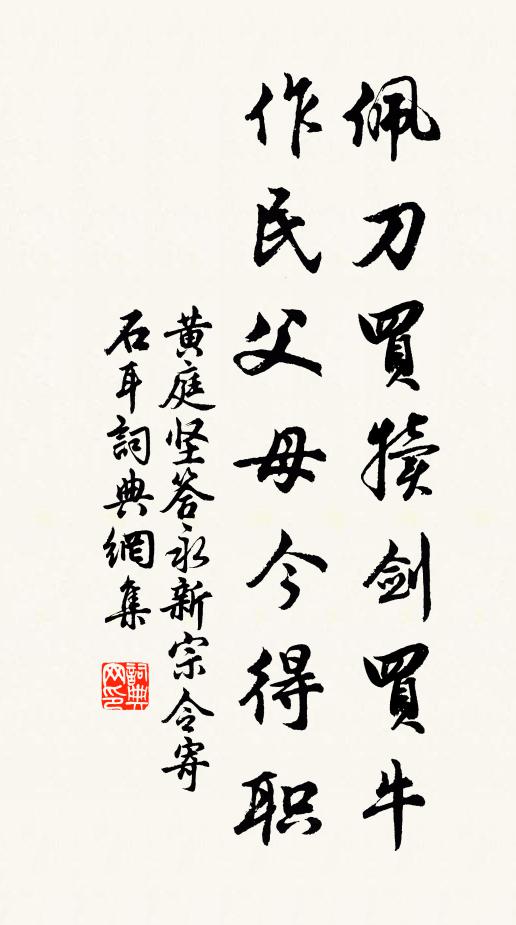 佩刀買犢剑買牛
作民父母今得职
黄庭坚答永新宗令寄
石耳詞典網集
詞典网印